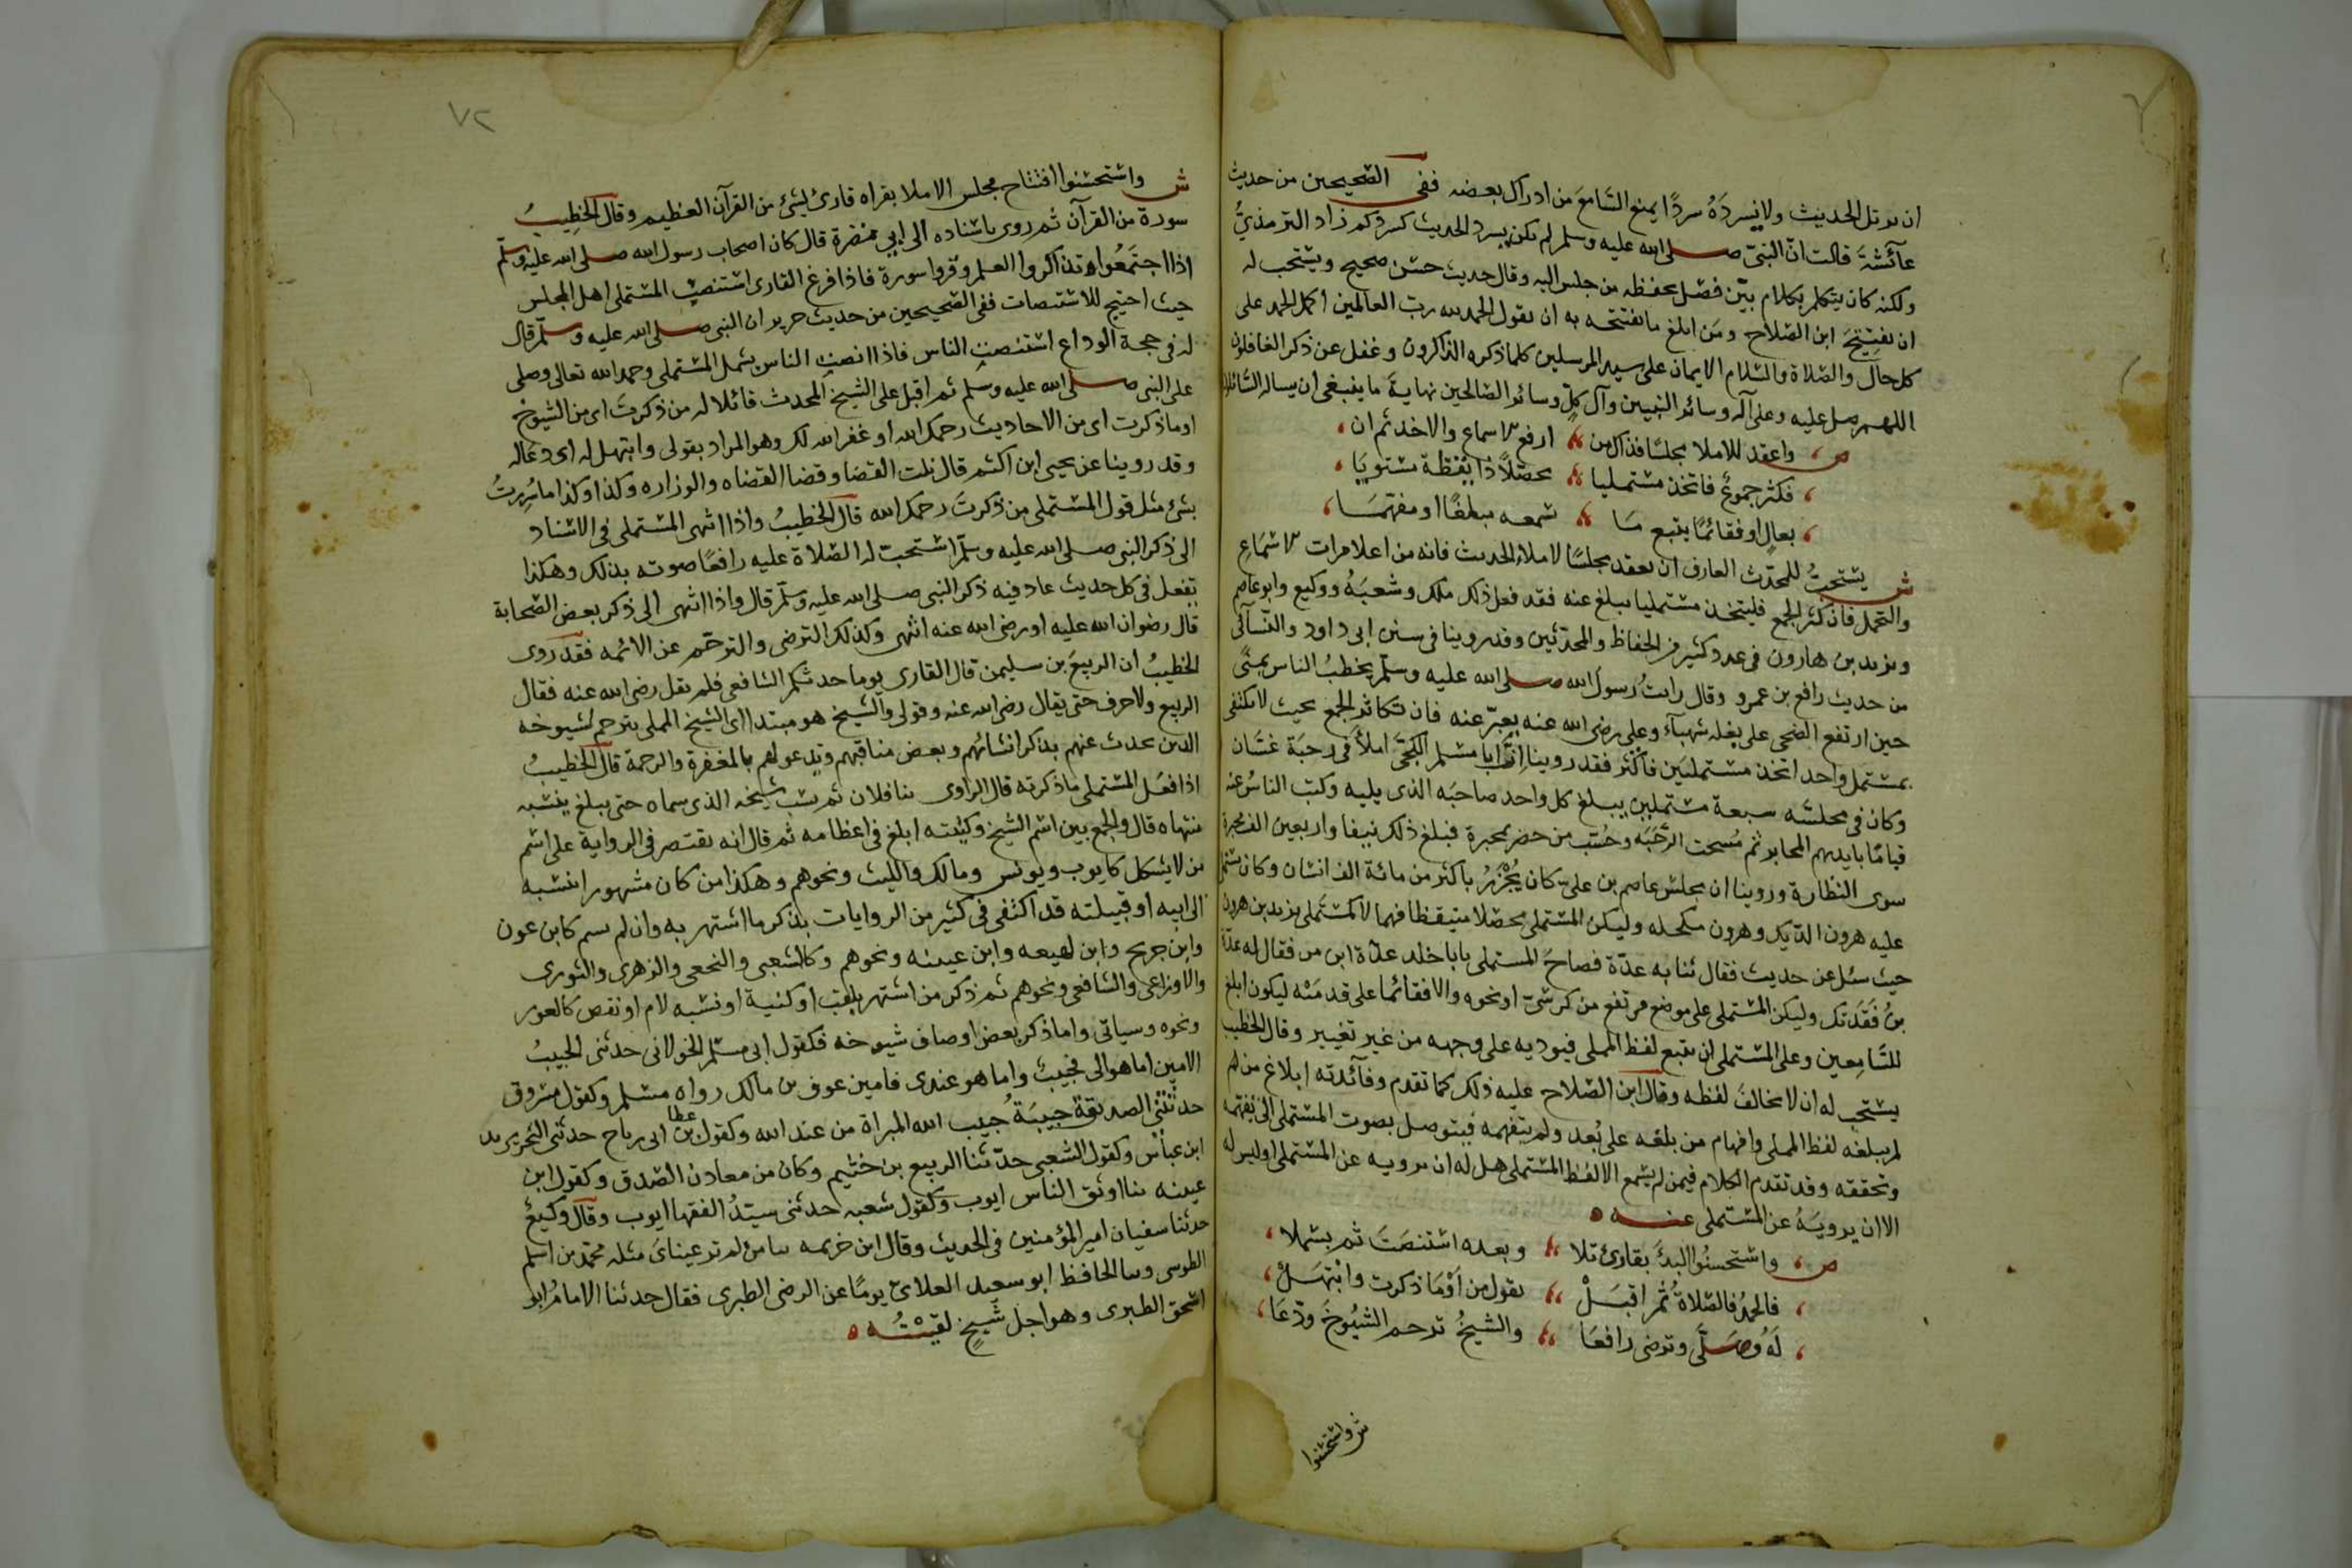 ان يرتل الحديث ولا يسرده سردًا يمنع السّامعَ من ادراك بعضه ففى الصّحيحين من حديث
عآئشةَ قالت انّ النبىّ صلى الله عليه وسلم لم يكن يسرد الحديث كسردكم زاد الترمذىُّ
ولكنه كان يتكلم بكلام بيّن فصْل يحفظه من جلس اليه وقال حديث حسَن صحيح ويستحب له
ان يفتتِحَ ابن الصّلاح ومَن ابلغ ما يفتتحه به ان يقول الحمد لله رب العالمين اكمل الحمد على
كل حال والصّلاة والسّلام الايمان على سيد المرسلين كلما ذكره الذاكرون وغفل عن ذكره الغافلون
اللهم صل عليه وعلى آله وسائر النبيين وآل كلّ وسائر الصّالحين نهايةَ ما ينبغى ان يساله السّائلون
ص واعقد للاملا مجلسًا فذاك من ارفع الاسماع والاخذ ثم ان
فكثر جموع فاتخذ مستمليا محصّلاً ذا يقظة مستويًا
بعالٍ او فقائمًا يتبع ما يسمعه مبلغًا او مفهّمَا
ش يستحبُّ للمحدّث العارف ان يعقد مجلسًا لاملاء الحديث فانه من اعلا مراتب الاسماع
والتحمل فان كثر الجمع فليتخذ مستمليا يبلغ عنه فقد فعل ذلك ملك وشعبَةُ ووكيع وابو عاصم
ويزيد بن هارون فى عدد كثير من الحفاظ والمحدّثين وقد روينا فى سنن ابى داود والنّسآئى
من حديث رافع بن عمرو وقال رايتُ رسولَ الله صلى الله عليه وسلّم يخطبُ الناس بمنًى
حين ارتفع الضحى على بغله شهبآء وعلى رضى الله عنه يعبّر عنه فان تكاثر الجمع بحيث لا يكتفى
بمستمل واحد اتخذ مستمليَين فاكْثر فقد روينا انّ ابا مسلم الكجّى املأ فى رحبَة غسّان
وكان فى مجلسه سبعة مستملين يبلغ كل واحد صاحبَه الذى يليه وكتب الناسُ عنه
قيامًا بايديهم المحابر ثم مُسحت الرّحَبَه وحُسب من حضر بمحبرة فبلغ ذلك نيفا واربعين الف محبرة
سوى النظارة وروينا ان مجلس عاصم بن على كان يُحْزَرُ باكثر من مائة الف انسان وكان يستملى
عليه هرون الدّيك وهرون مكحله وليكن المستملى محصّلا متيقظا فهما لا كمستَملى يزيد بن هرون
حيث سئل عن حديث فقال ثنا به عدّة فصاحَ المستملى يابا خلد عدّة ابن من فقال له عدّة
بنُ فَقَدتك وليكن المستملى على موضع مرتفع من كرسّى او نحوه والا فقائما على قدمَيْه ليكون ابلغ
للسَّامِعين وعلى المستملى ان يتبع لفظ المملى فيوديه على وجهه من غير تغيير وقال الخطيب
يستحب له ان لا يخالفَ لفظه وقال ابن الصّلاح عليه ذلك كما تقدم وفآئدته ابلاغ من لم
لم يبلغه لفظ المملى وافهام من بلغه على بُعد ولم يتفهمه فيتوصل بصوت المستملى الى تفهمه
وتحققه وقد تقدم الكلام فيمن لم يسْمع الا لفظ المستملى هل له ان يرويه عن المستملى او ليس له
الا ان يرويَهُ عن المستملى عنه
ص واستحسنُوا البدَ بقارئ تلا وبعده استنصَتَ ثم بسْملا
فالحمدُ فالصّلاةُ ثم اقبَلْ يقول من اَوْمَا ذكرت وابْتهَلْ
لَهُ وصَلّى وترضى رافعَا والشيخُ ترحم الشيُوخَ ودَعَا
ش واستحسنوا
٧٢
ش واستحسنوا افتتاح مجلس الاملا بقراه قارئ لشئ من القرآن العظيم وقال الخطِيبُ
سورة من القرآن ثم روى باسْناده الى ابي نضرة قال كان اصحاب رسول الله صلى الله عليه وسلّم
اذا اجتَمَعُوا تذاكروا العلم وقروا سورة فاذا فرغ القارى استنصِت المستملى اهل المجلس
حيث احتيج للاستنصات ففى الصّحيحين من حديث جرير ان النبى صلى الله عليه وسلّم قال
له فى حجة الوداع استنصت الناس فاذا انصت الناس بسْمل المستملى وحمد الله تعالى وصلى
على النبى صلى الله عليه وسلم ثم اقبل على الشّيخ المحدث قائلا له من ذكرتَ اى من الشيوخ
او ما ذكرت اى من الاحاديث رحمك الله او غفر الله لك وهو المراد بقولى وابتهل له اى دعا له
وقد روينا عن يحيى ابن اكثم قال نلت القضا وقضا القضاه والوزاره وكذا وكذا ما سُررتُ
بشئ مثل قول المستملى من ذكرتَ رحمك الله قال الخطيبُ واذا انتهى المستملى فى الاسْناد
الى ذكر النبى صلى الله عليه وسلّم استحبّ له الصّلاة عليه رافعًا صوته بذلك وهكذا
يفعل فى كل حديث عاد فيه ذكر النبى صلى الله عليه وسلّم قال واذا انتهى الى ذكر بعض الصّحابة
قال رضوان الله عليه او رضى الله عنه انتهى وكذلك الترضى والترحّم عن الائمه فقد روى
الخطيبُ ان الربيعَ بن سليمن قال القارى يوما حدثكم الشافعى فلم يقل رضى الله عنه فقال
الربيع ولا حرف حتى يقال رضى الله عنه وقولى والشيخ هو مبتدا اى الشيخ المملى يترحم لشيوخه
الذين يحدث عنهم بذكر انسابهم وبعض مناقبهم ويدعو لهم بالمغفرة والرحمة قال الخطيبُ
اذا فعَل المستملى ما ذكرته قال الراوى ثنا فلان ثم نسَب شيخه الذى سماه حتى يبلغ بنسَبه
منتهاه قال والجمع بين اسْم الشيخ وكنيته ابلغ فى اعظامه ثم قال انه يقتصر فى الرواية على اسْم
من لا يشكل كايوب ويونس ومالك والليث ونحوهم وهكذا من كان مشهورا بنسْبه
الى ابيه او قبيلته قد اكتفى فى كثير من الروايات بذكر ما اشتهر به وان لم يسم كابن عون
وابن جريج وابن لهيعه وابن عيينه ونحوهم وكالشعبى والنخعى والزهرى والثورى
والاوزاعى والشافعى ونحوهم ثم ذكر من اشتهر بلقب او كنية او نسْبه لام او نقص كالعور
ونحوه وسياتى واما ذكر بعض اوصاف شيوخه فكقول ابى مسلم الخولانى حدثنى الحبيبُ
الامين اما هو الى فحبيبٌ واما هو عندى فامين عوف بن مالك رواه مسْلم وكقول مسْروق
حدثتْنى الصديقة حبيبَةُ حبيب الله المبراة من عند الله وكقول عطا بن ابى رباح حدثنى البحر يريد
ابن عبّاس وكقول الشعبى حدّثنا الربيع بن خثيم وكان من معادن الصّدق وكقول ابن
عيينه ثنا اوثق الناس ايوب وكقول شعبه حدثنى سيّدُ الفقها ايوب وقال وكيعُ
حدثنا سفيان امير المؤمنين فى الحديث وقال ابن خزيمه ثنا من لم تر عيناىَ مثله محمّد بن اسْلم
الطوسى وثنا الحافظ ابو سعيد العلائ يومًا عن الرضى الطبرى فقال حدثنا الامامُ ابو
اسحق الطبرى وهو اجل شَيخٍ لقيْتُه